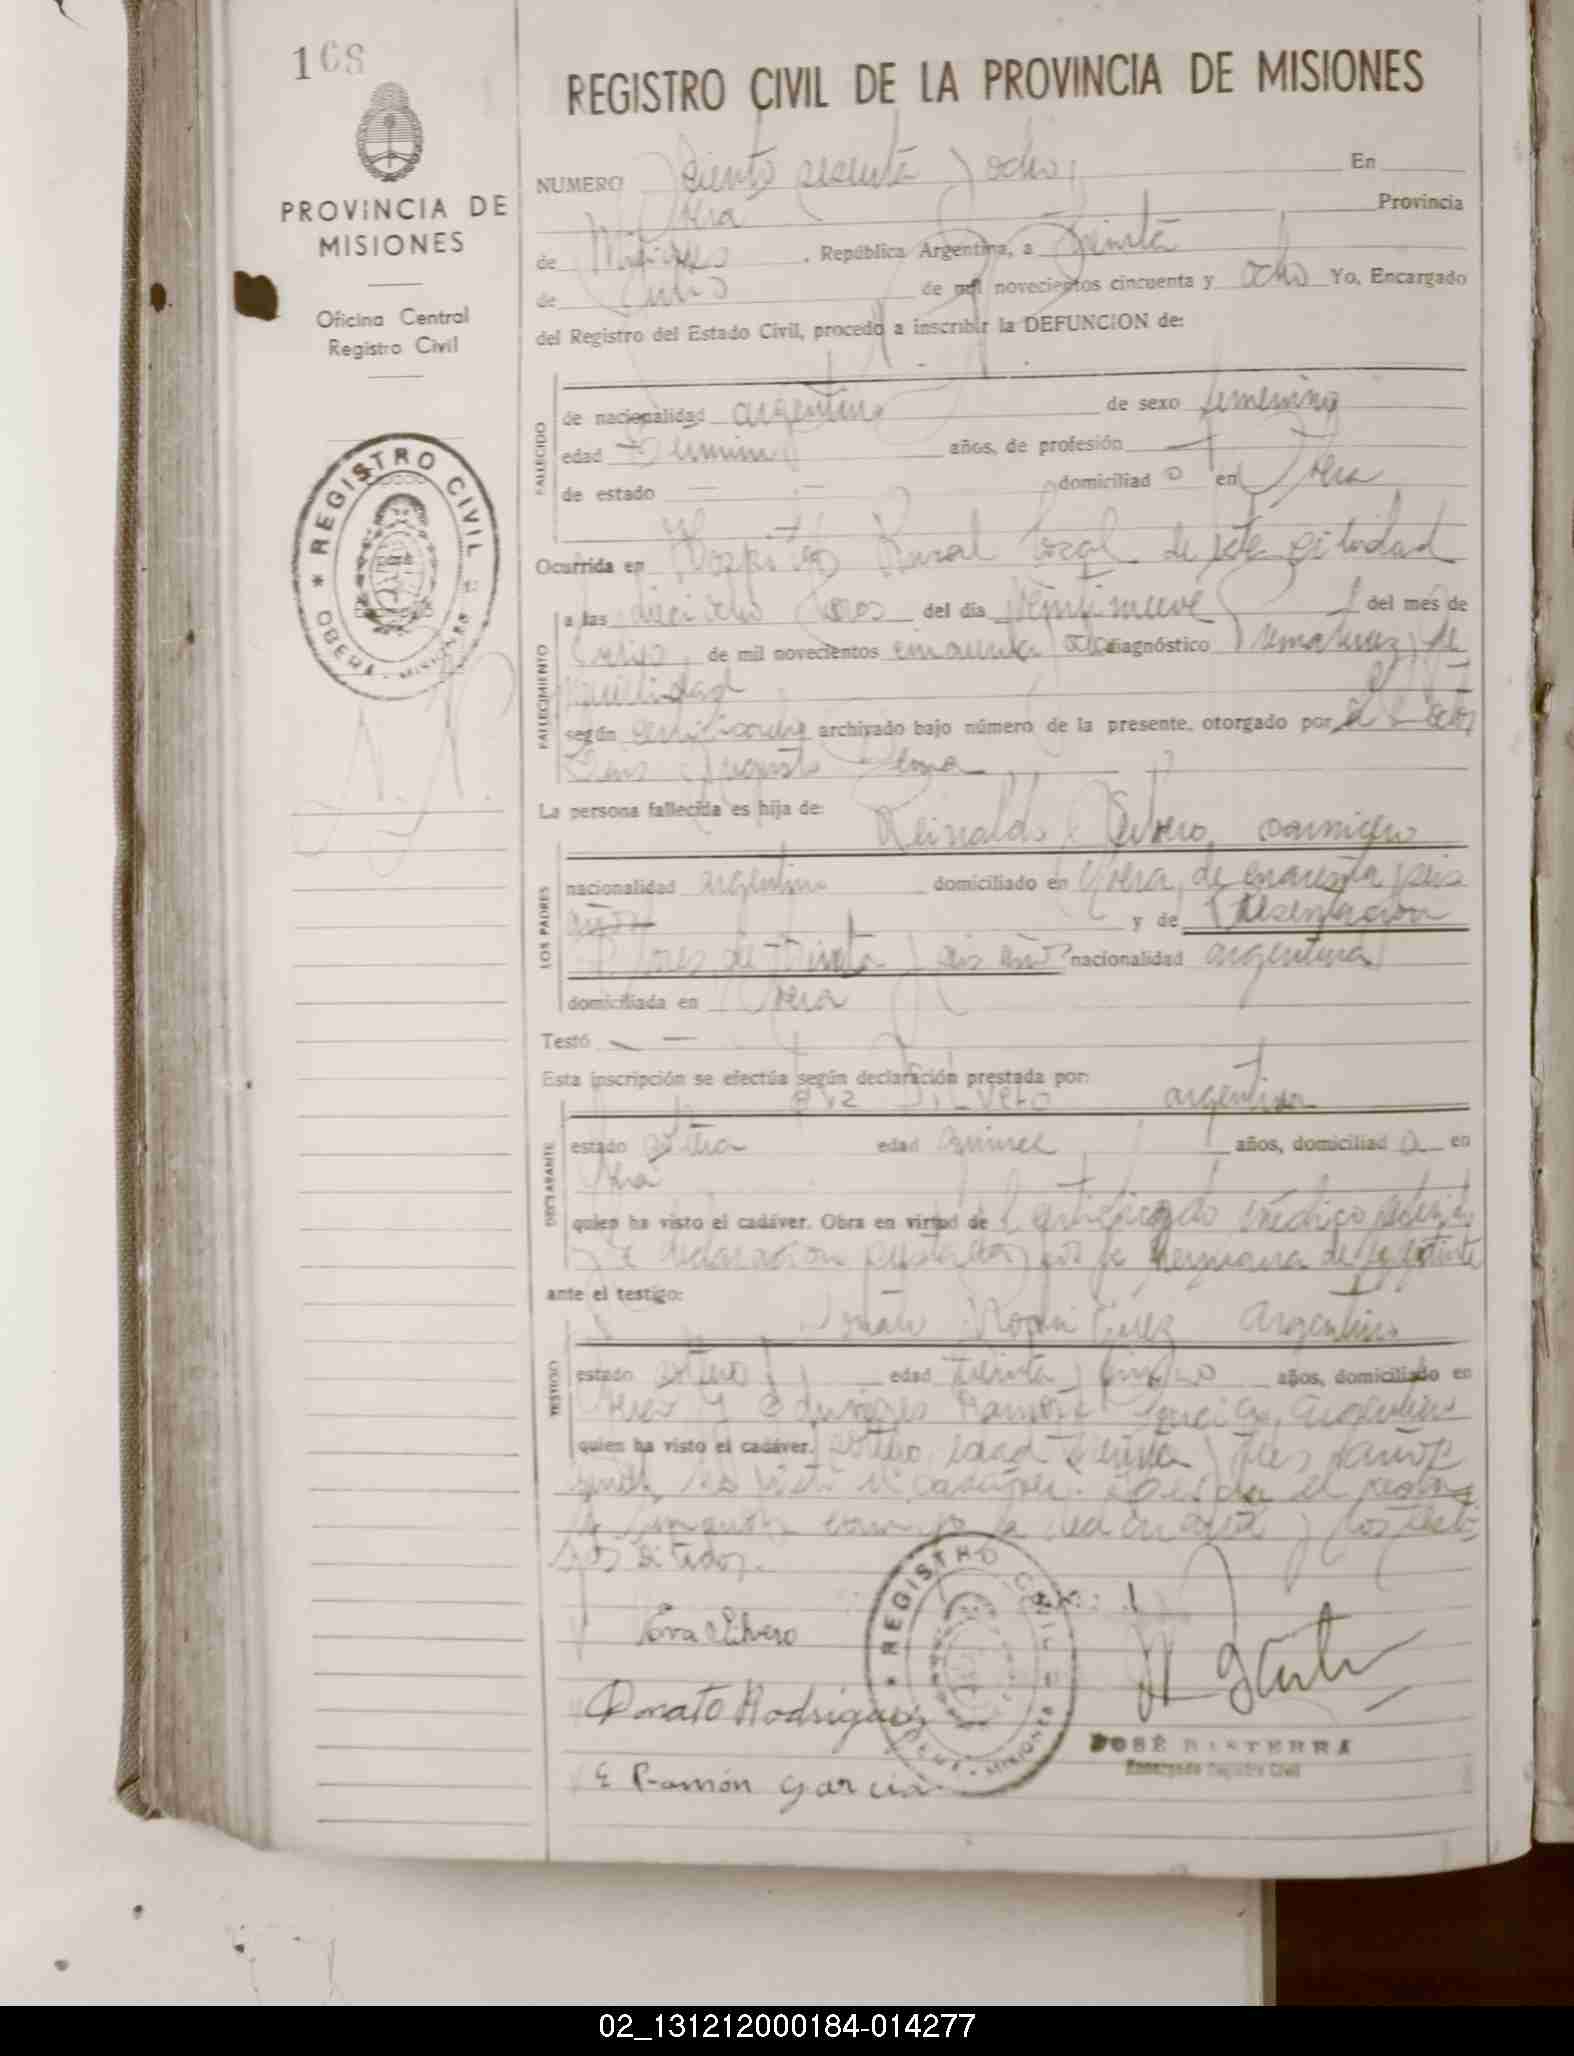 168
PROVINCIA DE
MISIONES
Oficina Central
Registro Civil
* REGISTRO CIVIL *
OBERA - MISIONES
REGISTRO CIVIL DE LA PROVINCIA DE MISIONES
NUMERO Ciento sesenta y ocho En
Obera Provincia
de Misiones, República Argentina, a treinta
de de mil novecientos cincuenta y ocho Yo, Encargado
del Registro del Estado Civil, procedo a inscribir la DEFUNCION de:
FALLECIDO
de nacionalidad argentina de sexo femenino
edad años, de profesión
de estado domiciliad o en Obera
Ocurrida en Hospital Rural local de esta ciudad
FALLECIMIENTO
a las dieciocho horas del día veintinueve del mes de
de mil novecientos cincuenta ocho diagnóstico Prematurez y de
según certificado archivado bajo número de la presente, otorgado por el Doctor
Augusto
La persona fallecida es hija de:
LOS PADRES
Reinaldo Silvero, carnicero
nacionalidad argentina domiciliado en Obera, de cuarenta y seis
años y de Presentación
Flores de treinta y seis años nacionalidad argentina
domiciliada en Obera
Testó
Esta inscripción se efectúa según declaración prestada por:
DECLARANTE
Eva Silvero argentina
estado soltera edad quince años, domiciliad a en
Obera
quien ha visto el cadáver. Obra en virtud de certificado médico
y de declaración prestada por la hermana de la extinta
ante el testigo:
TESTIGO
Donato Rodriguez Argentino
estado soltero edad treinta y cinco años, domiciliado en
Obera y Ramón Garcia, Argentino
quien ha visto el cadáver. soltero, edad treinta y tres años
quien ha visto el cadáver. Leida el acta
la firmaron conmigo la declarante y los testi-
gos citados.
Eva Silvero
Donato Rodriguez
E Ramón Garcia
REGISTRO CIVIL
OBERA - MISIONES
JOSÉ BASTERRA
Encargado Registro Civil
02_131212000184-014277